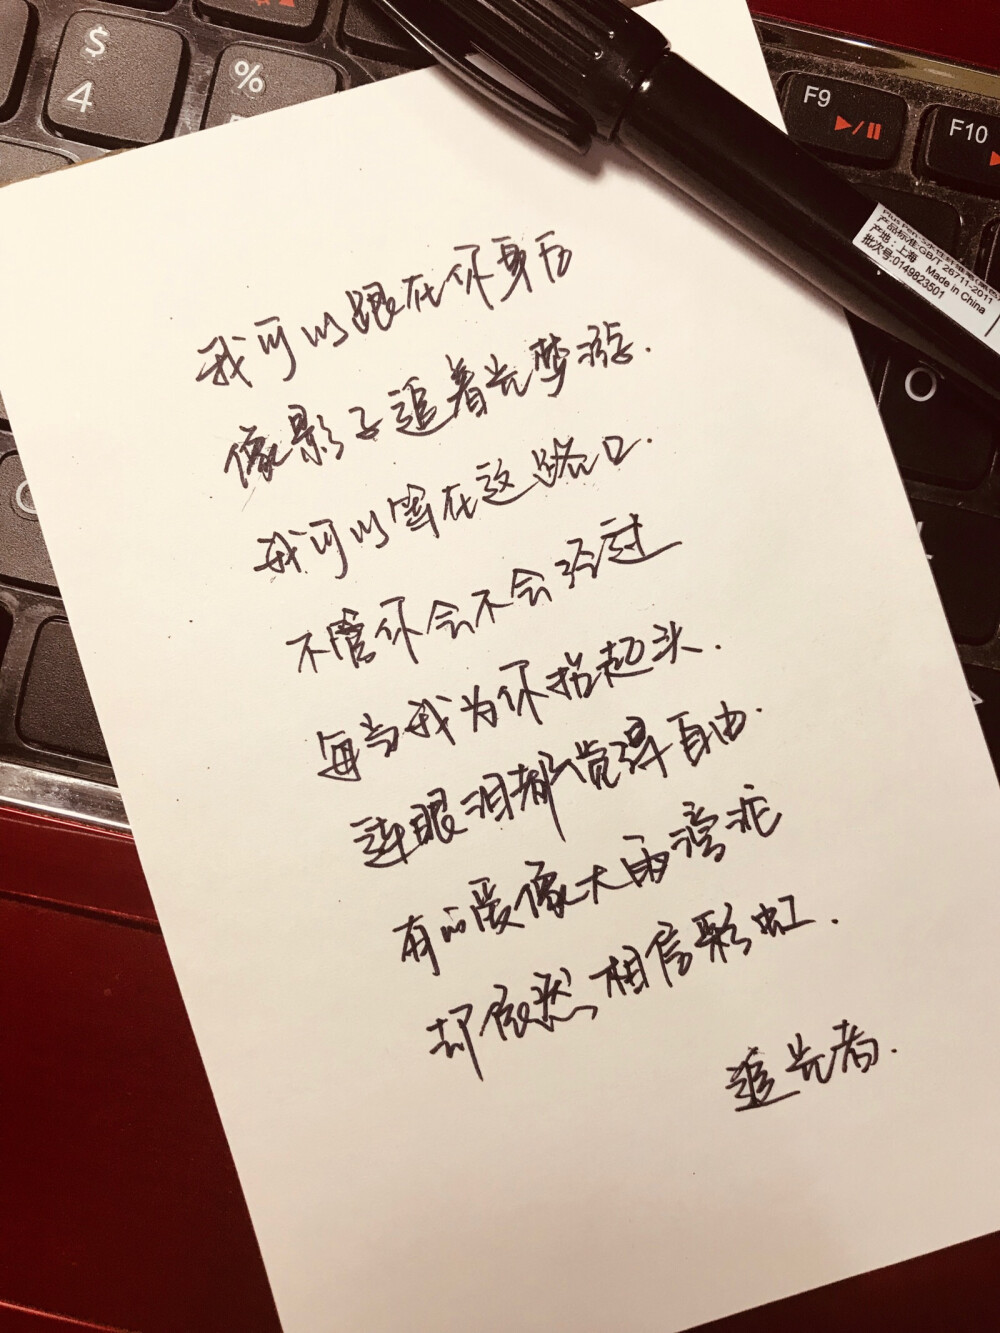 $
4
%
F9
F10
产品标准:GB/T 26711-2011
产地:上海 Made in China
批次号:0149823501
O
我可以跟在你身后
像影子追着光梦游.
我可以等在这路口.
不管你会不会经过
每当我为你抬起头.
连眼泪都觉得自由.
有的爱像大雨滂沱
却依然相信彩虹.
追光者.